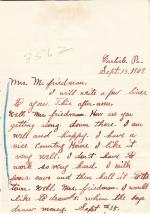 3562
Carlisle Pa.
Sept. 13, 1908
Mrs. M. Friedman.
I will write a few lines
to you. This after-noon.
Well Mrs. Friedman. How are you
getting along down there I am
well and happy. I have a
nice Country Home I like it
very well. I don't have to
work so very hard. I milk
cows and then haul it to the
town. Well. Mrs. Friedman. I would
like to draw when the boys
draw money. Sept